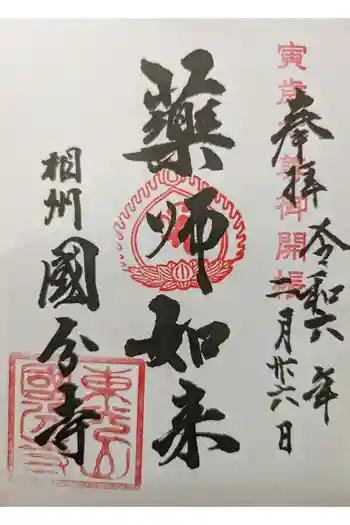 奉拝
令和六年
二月廿六日
寅歳御開帳
薬師如来
相州
國分寺
東光山
國分寺